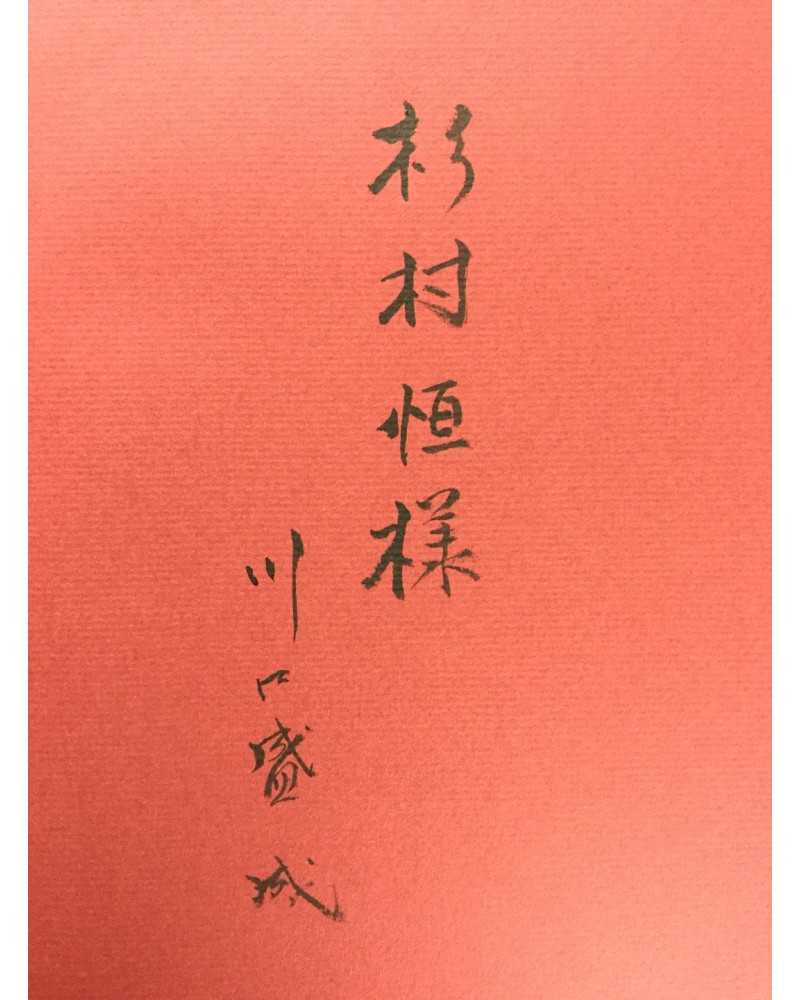 杉村恒様
川口盛城